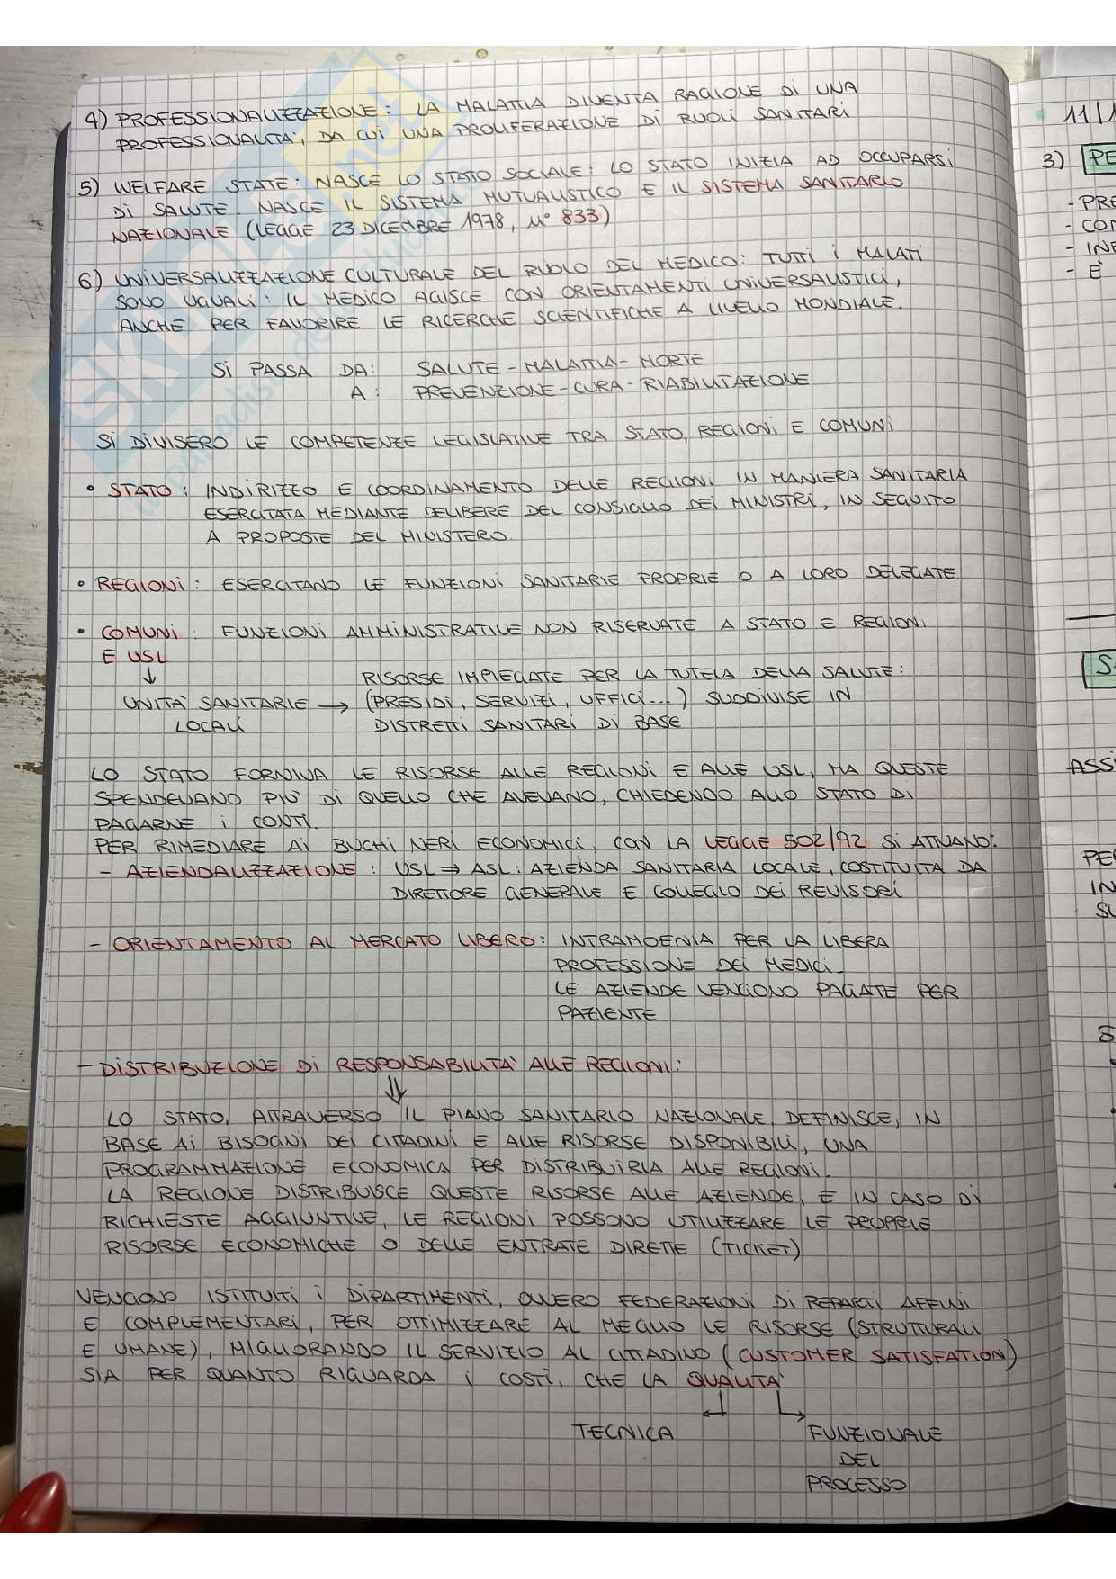 4) PROFESSIONALIZZAZIONE: LA MALATTIA DIVENTA RAGIONE DI UNA
PROFESSIONALITA', DA CUI UNA PROLIFERAZIONE DI RUOLI SANITARI
5) WELFARE STATE: NASCE LO STATO SOCIALE: LO STATO INIZIA AD OCCUPARSI
DI SALUTE. NASCE IL SISTEMA MUTUALISTICO E IL SISTEMA SANITARIO
NAZIONALE (LEGGE 23 DICEMBRE 1978, N° 833)
6) UNIVERSALIZZAZIONE CULTURALE DEL RUOLO DEL MEDICO: TUTTI I MALATI
SONO UGUALI: IL MEDICO AGISCE CON ORIENTAMENTI UNIVERSALISTICI,
ANCHE PER FAVORIRE LE RICERCHE SCIENTIFICHE A LIVELLO MONDIALE.
SI PASSA DA: SALUTE - MALATTIA - MORTE
A: PREVENZIONE - CURA - RIABILITAZIONE
SI DIVISERO LE COMPETENZE LEGISLATIVE TRA STATO, REGIONI E COMUNI
• STATO: INDIRIZZO E COORDINAMENTO DELLE REGIONI IN MANIERA SANITARIA
ESERCITATA MEDIANTE DELIBERE DEL CONSIGLIO DEI MINISTRI, IN SEGUITO
A PROPOSTE DEL MINISTERO.
• REGIONI: ESERCITANO LE FUNZIONI SANITARIE PROPRIE O A LORO DELEGATE
• COMUNI: FUNZIONI AMMINISTRATIVE NON RISERVATE A STATO E REGIONI.
E USL
↓ RISORSE IMPIEGATE PER LA TUTELA DELLA SALUTE:
UNITA' SANITARIE → (PRESIDI, SERVIZI, UFFICI...) SUDDIVISE IN
LOCALI DISTRETTI SANITARI DI BASE
LO STATO FORNIVA LE RISORSE ALLE REGIONI E ALLE USL, MA QUESTE
SPENDEVANO PIU' DI QUELLO CHE AVEVANO, CHIEDENDO ALLO STATO DI
PAGARNE I CONTI.
PER RIMEDIARE AI BUCHI NERI ECONOMICI, CON LA LEGGE 502/92 SI ATTUANO:
- AZIENDALIZZAZIONE: USL ⇒ ASL: AZIENDA SANITARIA LOCALE, COSTITUITA DA
DIRETTORE GENERALE E COLLEGIO DEI REVISORI
- ORIENTAMENTO AL MERCATO LIBERO: INTRAMOENIA PER LA LIBERA
PROFESSIONE DEI MEDICI.
LE AZIENDE VENGONO PAGATE PER
PAZIENTE
- DISTRIBUZIONE DI RESPONSABILITA' ALLE REGIONI:
⇓
LO STATO, ATTRAVERSO IL PIANO SANITARIO NAZIONALE, DEFINISCE, IN
BASE AI BISOGNI DEI CITTADINI E ALLE RISORSE DISPONIBILI, UNA
PROGRAMMAZIONE ECONOMICA PER DISTRIBUIRLA ALLE REGIONI.
LA REGIONE DISTRIBUISCE QUESTE RISORSE ALLE AZIENDE, E IN CASO DI
RICHIESTE AGGIUNTIVE, LE REGIONI POSSONO UTILIZZARE LE PROPRIE
RISORSE ECONOMICHE O DELLE ENTRATE DIRETTE (TICKET)
VENGONO ISTITUITI I DIPARTIMENTI, OVVERO FEDERAZIONI DI REPARTI AFFINI
E COMPLEMENTARI, PER OTTIMIZZARE AL MEGLIO LE RISORSE (STRUTTURALI
E UMANE), MIGLIORANDO IL SERVIZIO AL CITTADINO (CUSTOMER SATISFATION)
SIA PER QUANTO RIGUARDA I COSTI, CHE LA QUALITA'
TECNICA FUNZIONALE
DEL
PROCESSO
11/1
3) PE
- PRE
- CON
- INF
- E'
S
ASSI
PER
IN
SU